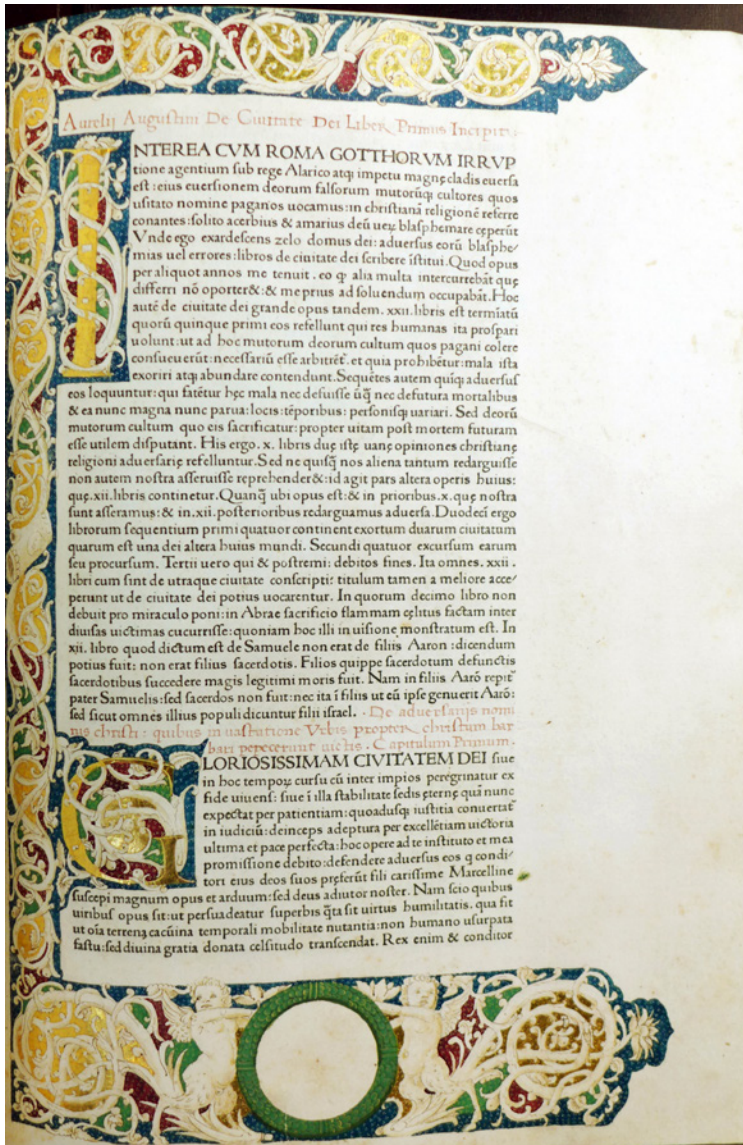 Aurelij Augustini De Ciuitate Dei Liber Primus Incipit:
INTEREA CVM ROMA GOTTHORVM IRRVP
tione agentium sub rege Alarico atqꝫ impetu magnę cladis euersa
est: eius euersionem deorum falsorum mutorūqꝫ cultores quos
usitato nomine paganos uocamus: in christianā religionē referre
conantes: solito acerbius & amarius deū ueꝝ blasphemare cęperūt
Vnde ego exardescens zelo domus dei: aduersus eorū blasphe/
mias uel errores: libros de ciuitate dei scribere īstitui. Quod opus
per aliquot annos me tenuit. eo ꝙ alia multa intercurrebāt quę
differri nō oporter&: & me prius ad soluendum occupabāt. Hoc
autē de ciuitate dei grande opus tandem .xxii. libris est termīatū
quorū quinque primi eos refellunt qui res humanas ita prospari
uolunt: ut ad hoc mutorum deorum cultum quos pagani colere
consueuerūt: necessariū esse arbitrēt᷑. et quia prohibētur: mala ista
exoriri atqꝫ abundare contendunt. Sequētes autem quīqꝫ aduersus
eos loquuntur: qui fatētur hęc mala nec defuisse ūq̄ nec defutura mortalibus
& ea nunc magna nunc parua: locis: tēporibus: personisqꝫ uariari. Sed deorū
mutorum cultum quo eis sacrificatur: propter uitam post mortem futuram
esse utilem disputant. His ergo .x. libris duę istę uanę opiniones christianę
religioni aduersarię refelluntur. Sed ne quisq̄ nos aliena tantum redarguisse
non autem nostra asseruisse reprehender&: id agit pars altera operis huius:
quę .xii. libris continetur. Quanq̄ ubi opus est: & in prioribus .x. quę nostra
sunt asseramus: & in .xii. posterioribus redarguamus aduersa. Duodecī ergo
librorum sequentium primi quatuor continent exortum duarum ciuitatum
quarum est una dei altera huius mundi. Secundi quatuor excursum earum
seu procursum. Tertii uero qui & postremi: debitos fines. Ita omnes .xxii.
libri cum sint de utraque ciuitate conscripti: titulum tamen a meliore acce/
perunt ut de ciuitate dei potius uocarentur. In quorum decimo libro non
debuit pro miraculo poni: in Abrae sacrificio flammam cęlitus factam inter
diuisas uictimas cucurrisse: quoniam hoc illi in uisione monstratum est. In
xii. libro quod dictum est de Samuele non erat de filiis Aaron: dicendum
potius fuit: non erat filius sacerdotis. Filios quippe sacerdotum defunctis
sacerdotibus succedere magis legitimi moris fuit. Nam in filiis Aarō repit᷑
pater Samuelis: sed sacerdos non fuit: nec ita ī filiis ut eū ipse genuerit Aarō:
sed sicut omnes illius populi dicuntur filii israel. · De aduersarijs nomi
nis christi: quibus in uastatione Vrbis propter christum bar
bari pepecerunt uictis. Capitulum Primum.
GLORIOSISSIMAM CIVITATEM DEI siue
in hoc tempoꝝ cursu cū inter impios peregrinatur ex
fide uiuens: siue ī illa stabilitate sedis ęternę quā nunc
expectat per patientiam: quoadusqꝫ iustitia conuertat᷑
in iudiciū: deinceps adeptura per excellētiam uictoria
ultima et pace perfecta: hoc opere ad te instituto et mea
promissione debito: defendere aduersus eos q condi/
tori eius deos suos pręferūt fili carissime Marcelline
suscepi magnum opus et arduum: sed deus adiutor noster. Nam scio quibus
uiribus opus sit: ut persuadeatur superbis q̄ta sit uirtus humilitatis. qua fit
ut oīa terrena cacuīna temporali mobilitate nutantia: non humano usurpata
fastu: sed diuina gratia donata celsitudo transcendat. Rex enim & conditor